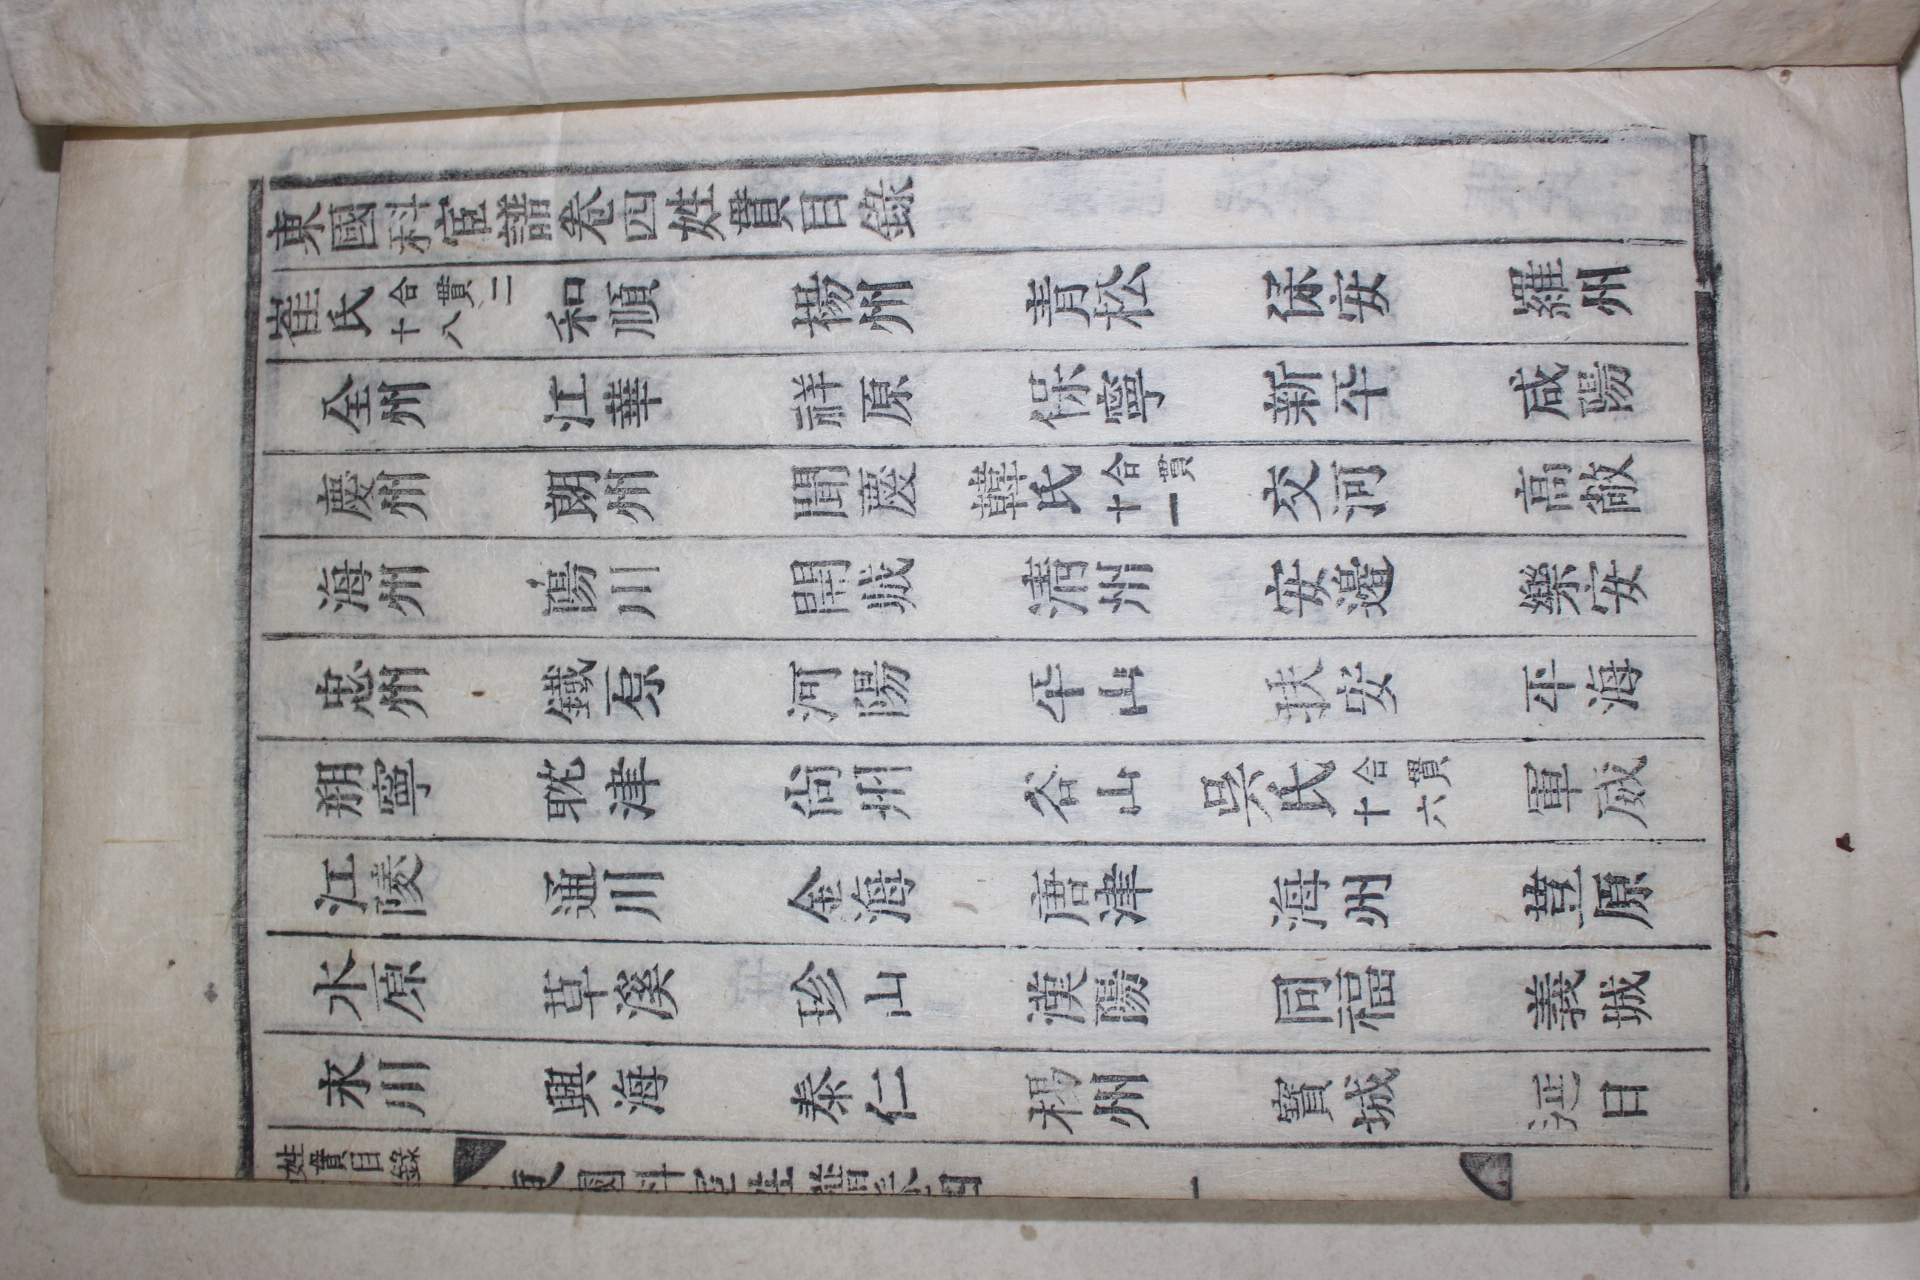 東國科宦譜卷四姓貫目錄
崔氏 合貫二十八 和順 楊州 青松 保安 羅州
全州 江華 祥原 保寧 新平 咸陽
慶州 朗州 聞慶 韓氏 合貫十一 交河 高敞
海州 陽川 開城 清州 安邊 樂安
忠州 鐵原 河陽 平山 扶安 平海
朔寧 耽津 尙州 谷山 吳氏 合貫十六 軍威
江陵 通川 金海 唐津 海州 荳原
水原 草溪 珍山 漢陽 同福 義城
永川 興海 泰仁 楊州 寶城 延日
姓貫目錄